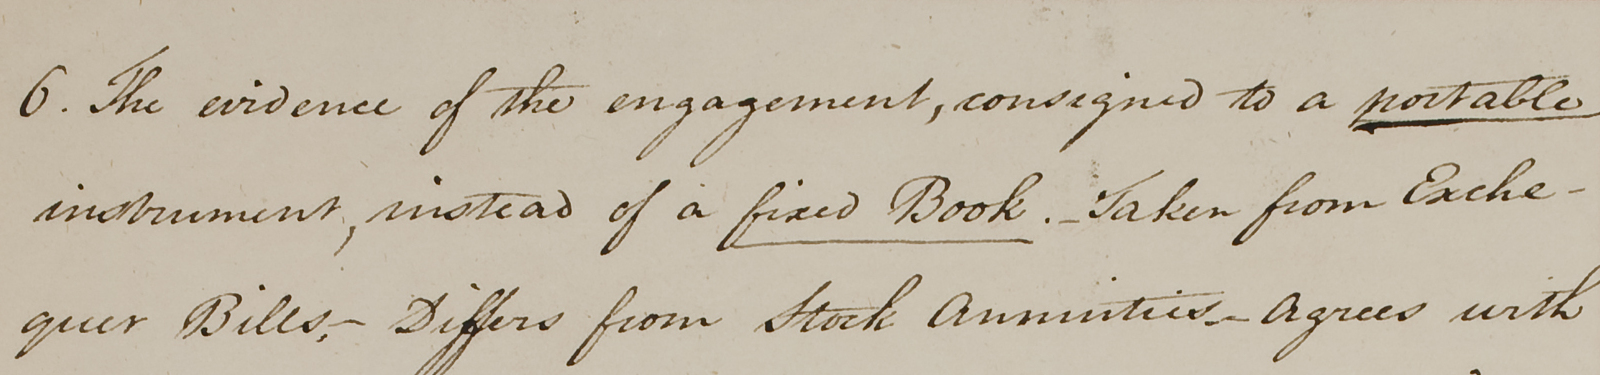 6. The evidence of the engagement, consigned to a portable
instrument, instead of a fixed Book. - Taken from Exche-
quer Bills, - Differs from Stock Annuities - Agrees with